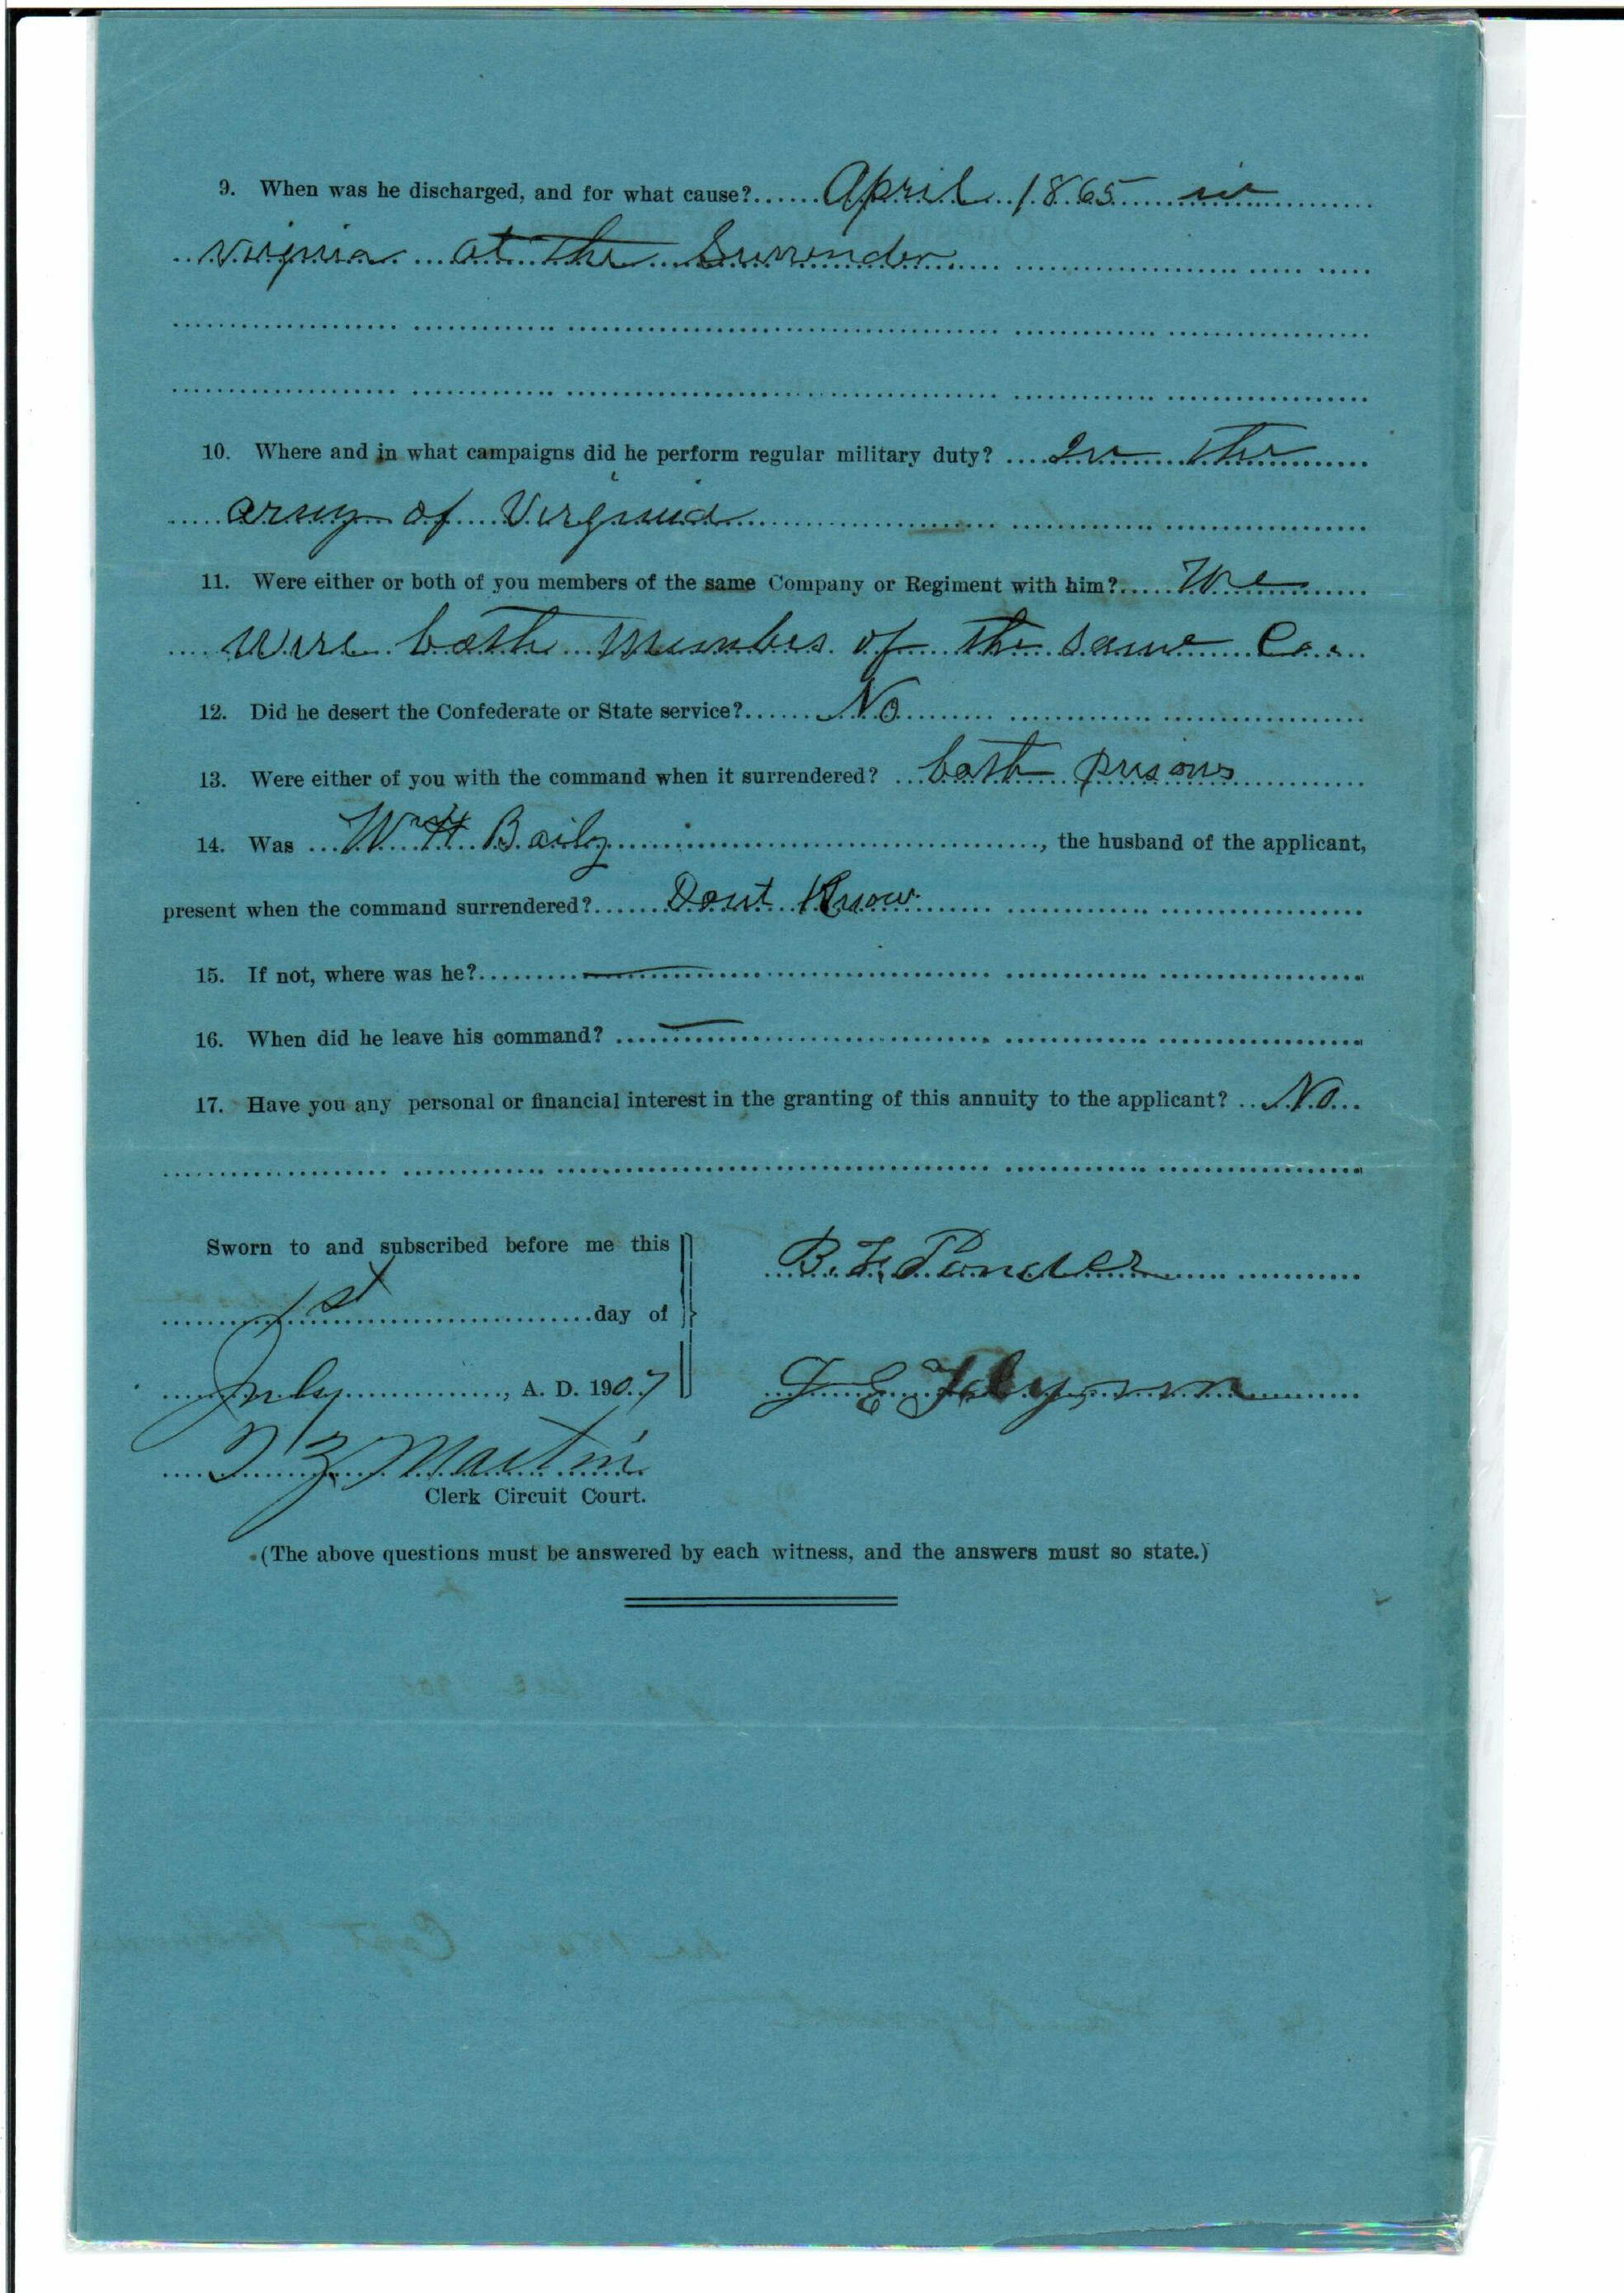 9. When was he discharged, and for what cause?......April 1865 in
Virginia at the Surrender
10. Where and in what campaigns did he perform regular military duty? ....In the
army of Virginia
11. Were either or both of you members of the same Company or Regiment with him?.....We
were both members of the same Co.
12. Did he desert the Confederate or State service?......No
13. Were either of you with the command when it surrendered? ..both prisons
14. Was ...Wm H Baily......, the husband of the applicant,
present when the command surrendered?......Dont Know
15. If not, where was he?.........
16. When did he leave his command? ......
17. Have you any personal or financial interest in the granting of this annuity to the applicant? ..No...
Sworn to and subscribed before me this
B. F. Ponder
1st day of
July, A. D. 1907
J E Flynn
T Z Martin
Clerk Circuit Court.
(The above questions must be answered by each witness, and the answers must so state.)